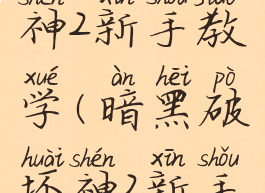 shén xīn shǒu jiào
神2新手教
xué àn hēi pò
学(暗黑破
huài shén xīn shǒu
坏神2新手